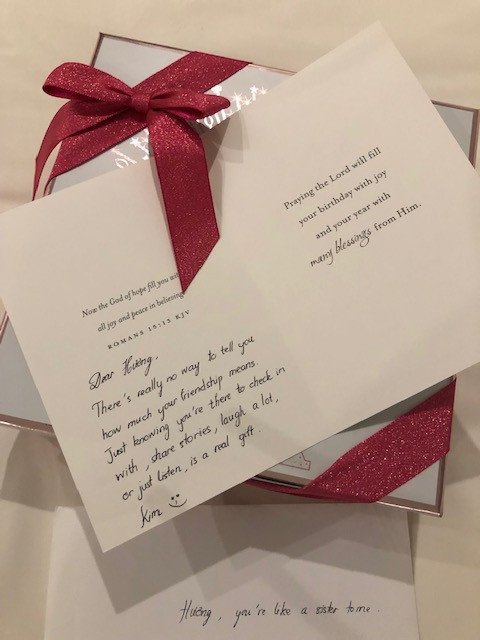 Now the God of hope fill you
all joy and peace in believing
ROMANS 15:13 KJV
Dear Hương,
There's really no way to tell you
how much your friendship means.
Just knowing you're there to check in
with, share stories, laugh a lot,
or just listen, is a real gift.
Kim
Praying the Lord will fill
your birthday with joy
and your year with
many blessings from Him.
Hương, you're like a sister to me.